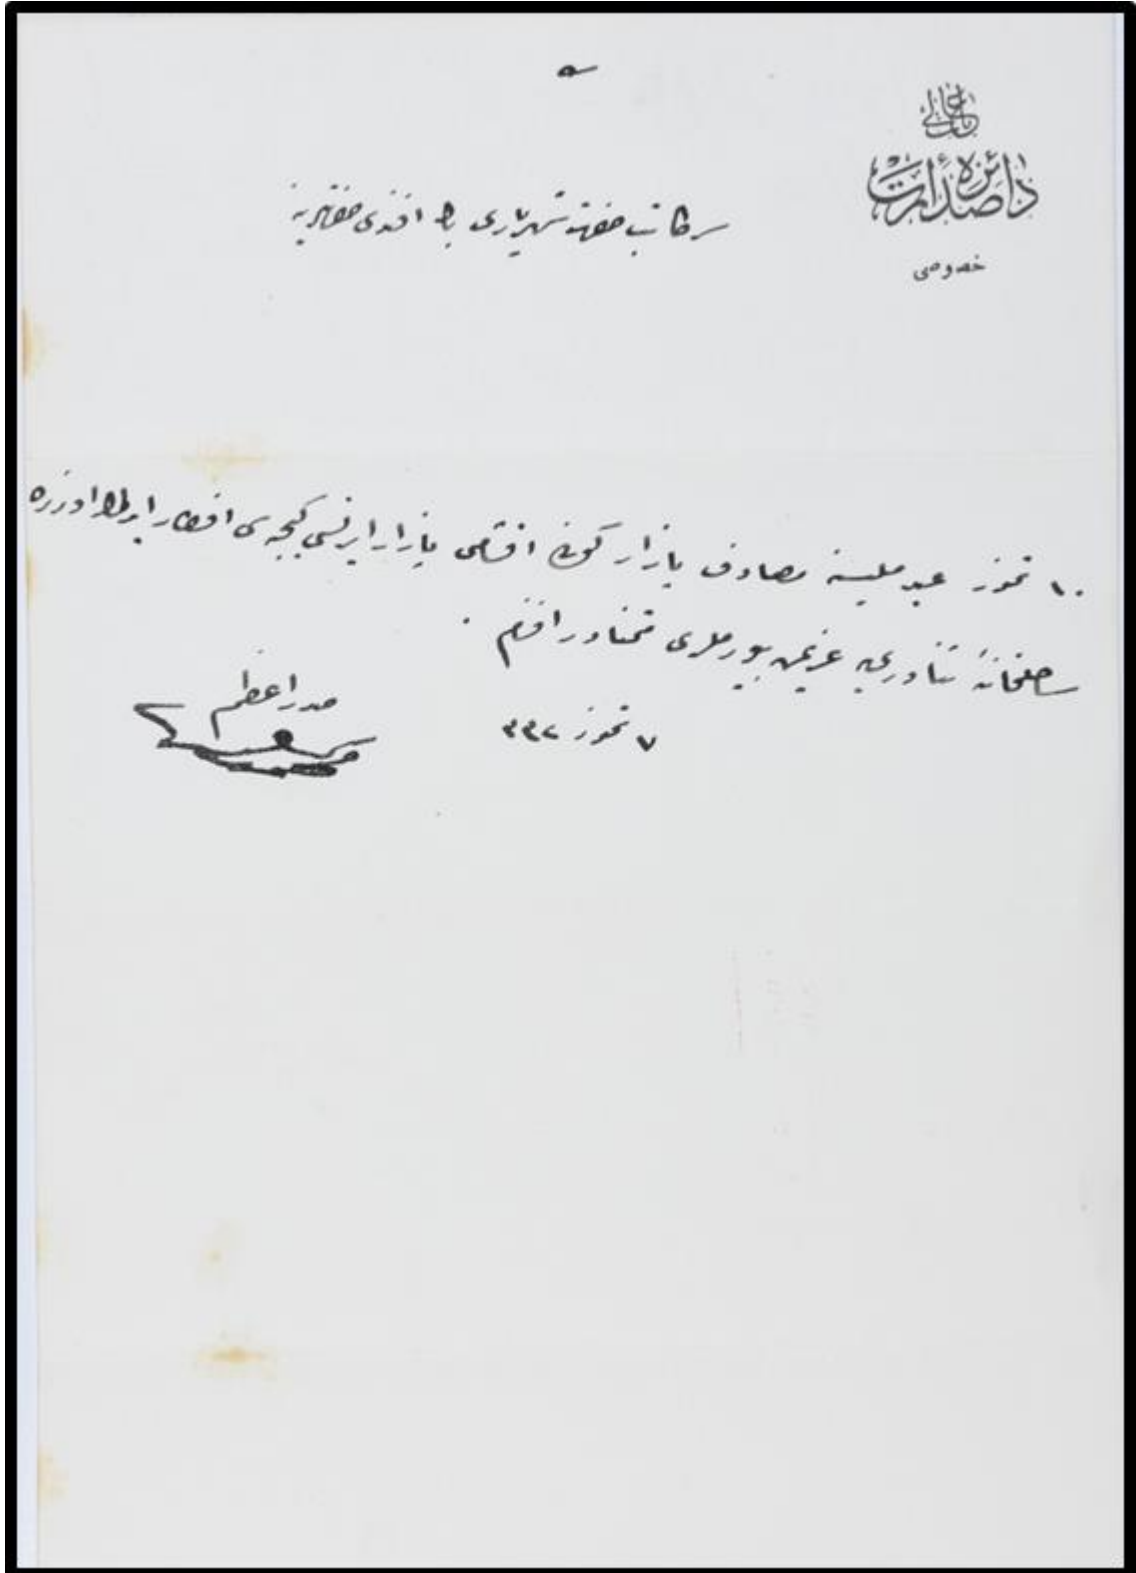 باب عالی
دائرهٔ صدارت
خصوصی
سركاتب حضرت شهریاری افندی حضرتلرینه
١٠ تموز عید ملیسنه مصادف پازار كونی اقشامی پازار ایرتسی كیجه‌سی افطار ایدلمك اوزره
ساحلخانهٔ ثناوری‌یه عزیمت بیورملری متمنادر افندم .
٧ تموز ٣٣٢
صدر اعظم